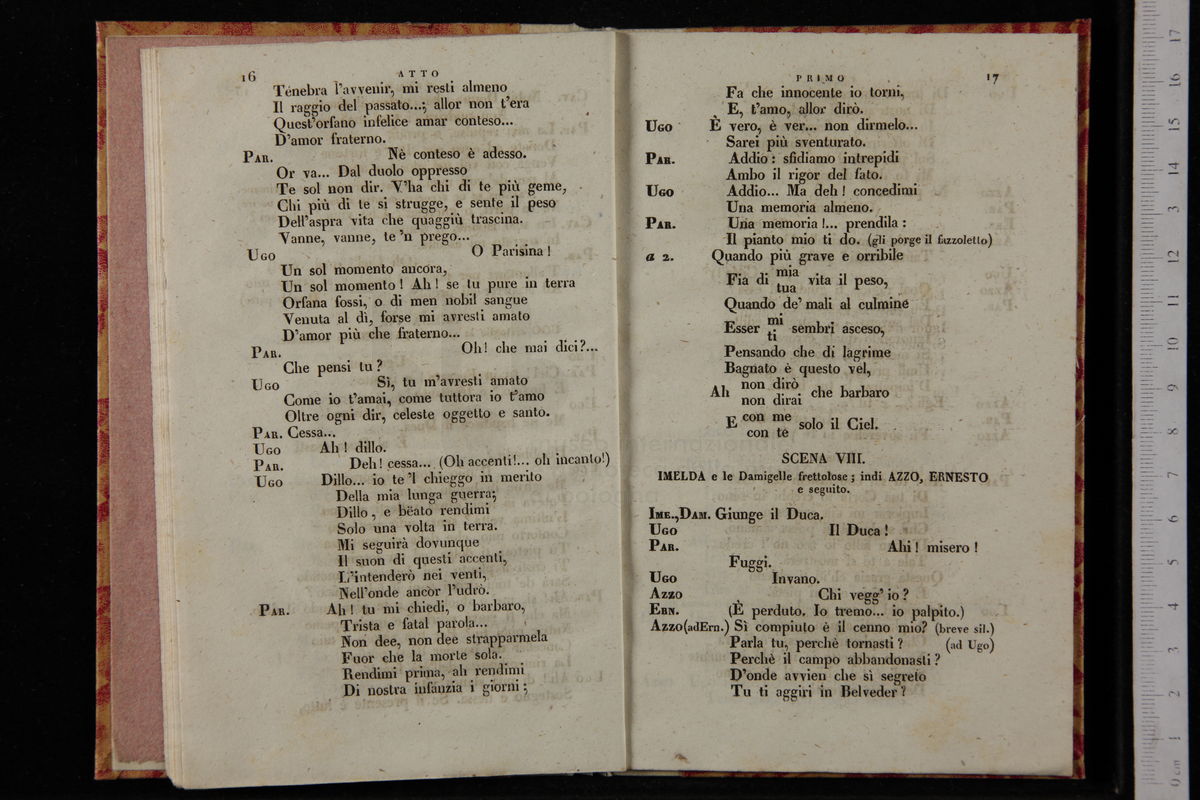 16
ATTO
Tenebra l'avvenir, mi resti almeno
Il raggio del passato...; allor non t'era
Quest'orfano infelice amar conteso...
D'amor fraterno.
PAR. Nè conteso è adesso.
Or va... Dal duolo oppresso
Te sol non dir. V'ha chi di te più geme,
Chi più di te si strugge, e sente il peso
Dell'aspra vita che quaggiù trascina.
Vanne, vanne, te 'n prego...
UGO O Parisina!
Un sol momento ancora,
Un sol momento! Ah! se tu pure in terra
Orfana fossi, o di men nobil sangue
Venuta al dì, forse mi avresti amato
D'amor più che fraterno...
PAR. Oh! che mai dici?...
Che pensi tu?
UGO Sì, tu m'avresti amato
Come io t'amai, come tuttora io t'amo
Oltre ogni dir, celeste oggetto e santo.
PAR. Cessa...
UGO Ah! dillo.
PAR. Deh! cessa... (Oh accenti!... oh incanto!)
UGO Dillo... io te 'l chieggo in merito
Della mia lunga guerra;
Dillo, e bëato rendimi
Solo una volta in terra.
Mi seguirà dovunque
Il suon di questi accenti,
L'intenderò nei venti,
Nell'onde ancor l'udrò.
PAR. Ah! tu mi chiedi, o barbaro,
Trista e fatal parola...
Non dee, non dee strapparmela
Fuor che la morte sola.
Rendimi prima, ah rendimi
Di nostra infanzia i giorni;
PRIMO
17
Fa che innocente io torni,
E, t'amo, allor dirò.
UGO È vero, è ver... non dirmelo...
Sarei più sventurato.
PAR. Addio: sfidiamo intrepidi
Ambo il rigor del fato.
UGO Addio... Ma deh! concedimi
Una memoria almeno.
PAR. Una memoria!... prendila:
Il pianto mio ti do. (gli porge il fazzoletto)
a 2. Quando più grave e orribile
Fia di mia vita il peso,
tua
Quando de' mali al culmine
Esser mi sembri asceso,
ti
Pensando che di lagrime
Bagnato è questo vel,
Ah non dirò che barbaro
non dirai
E con me solo il Ciel.
con te
SCENA VIII.
IMELDA e le Damigelle frettolose; indi AZZO, ERNESTO
e seguito.
IME., DAM. Giunge il Duca.
UGO Il Duca!
PAR. Ahi! misero!
Fuggi.
UGO Invano.
AZZO Chi vegg' io?
ERN. (È perduto. Io tremo... io palpito.)
AZZO (ad Ern.) Sì compiuto è il cenno mio? (breve sil.)
Parla tu, perchè tornasti? (ad Ugo)
Perchè il campo abbandonasti?
D'onde avvien che sì segreto
Tu ti aggiri in Belveder?